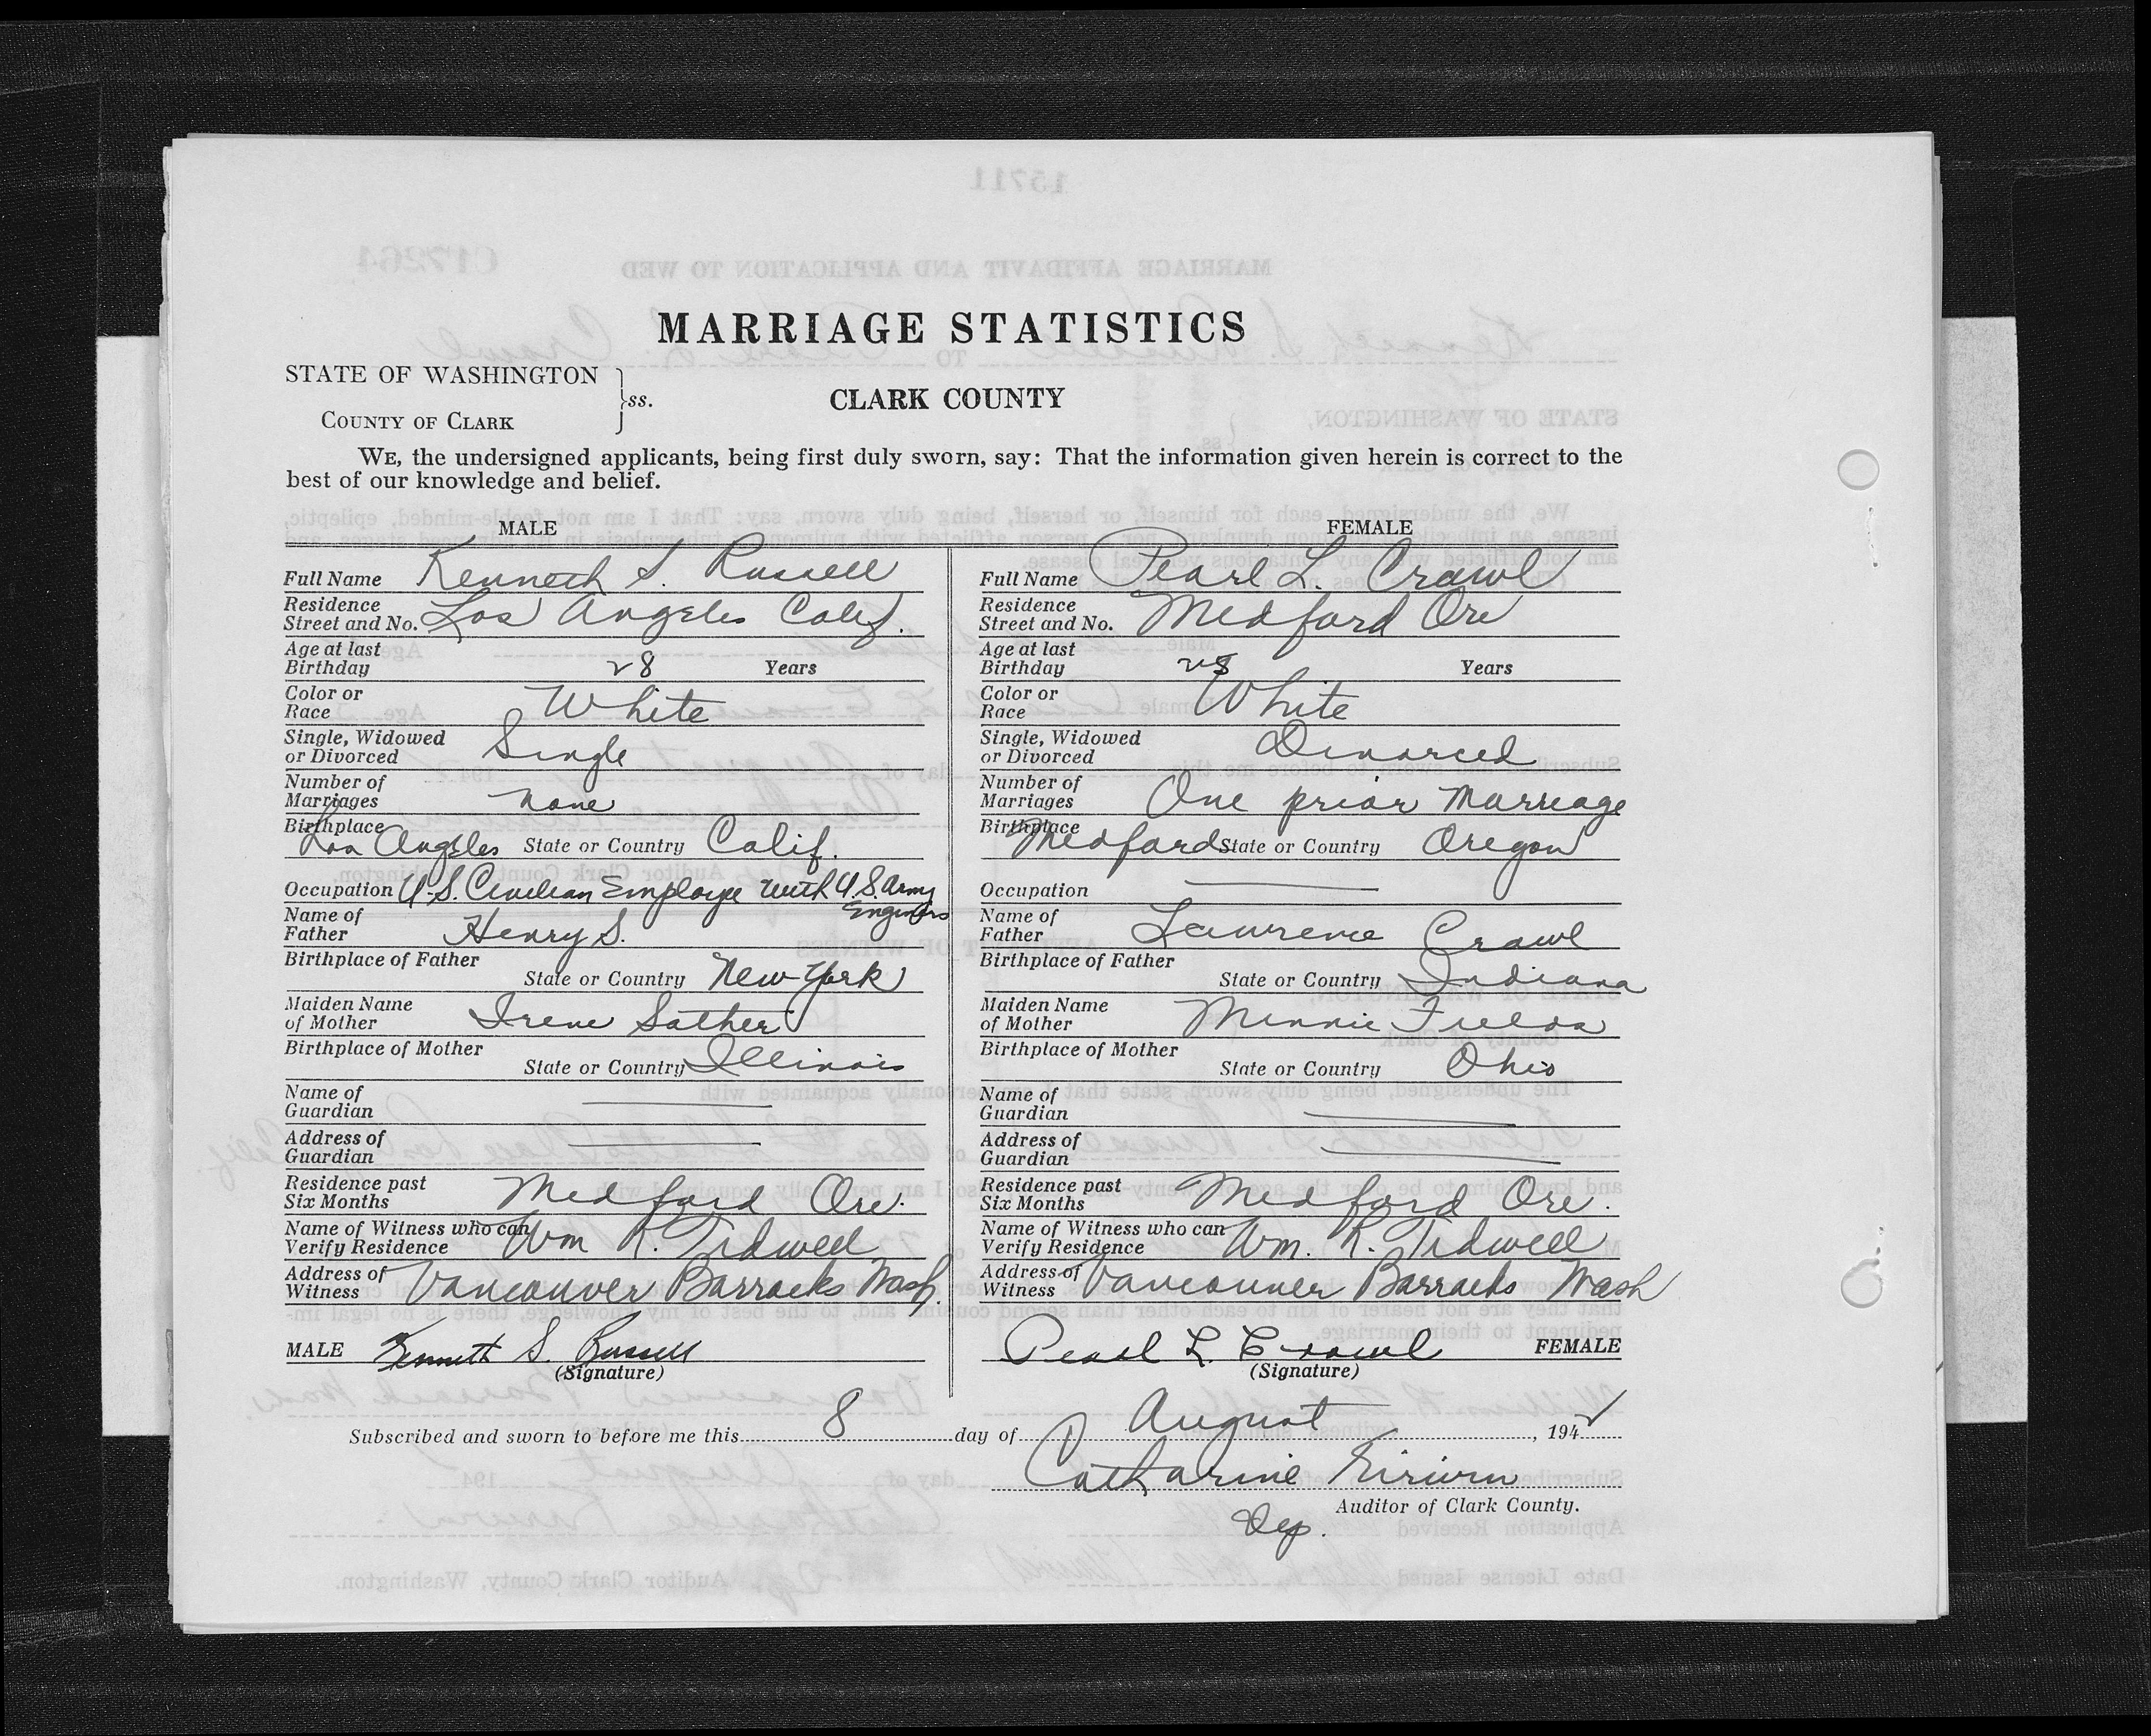 MARRIAGE STATISTICS
STATE OF WASHINGTON
COUNTY OF CLARK
ss.
CLARK COUNTY
WE, the undersigned applicants, being first duly sworn, say: That the information given herein is correct to the
best of our knowledge and belief.
MALE
Full Name Kenneth S. Russell
Residence
Street and No. Los Angeles Calif.
Age at last
Birthday 28 Years
Color or
Race White
Single, Widowed
or Divorced Single
Number of
Marriages None
Birthplace
Los Angeles State or Country Calif.
Occupation U.S. Civilian Employe with U.S. Army
Engineers
Name of
Father Henry S.
Birthplace of Father
State or Country New York
Maiden Name
of Mother Irene Sather
Birthplace of Mother
State or Country Illinois
Name of
Guardian
Address of
Guardian
Residence past
Six Months Medford Ore.
Name of Witness who can
Verify Residence Wm R. Tidwell
Address of
Witness Vancouver Barracks Wash
MALE Kenneth S. Russell
(Signature)
FEMALE
Full Name Pearl L. Crawl
Residence
Street and No. Medford Ore
Age at last
Birthday 28 Years
Color or
Race White
Single, Widowed
or Divorced Divorced
Number of
Marriages One prior Marriage
Birthplace
Medford State or Country Oregon
Occupation
Name of
Father Lawrence Crawl
Birthplace of Father
State or Country Indiana
Maiden Name
of Mother Minnie Fields
Birthplace of Mother
State or Country Ohio
Name of
Guardian
Address of
Guardian
Residence past
Six Months Medford Ore.
Name of Witness who can
Verify Residence Wm. R. Tidwell
Address of
Witness Vancouver Barracks Wash
Pearl L. Crawl FEMALE
(Signature)
Subscribed and sworn to before me this 8 day of August, 1942
Catharine
Auditor of Clark County.
Dep.